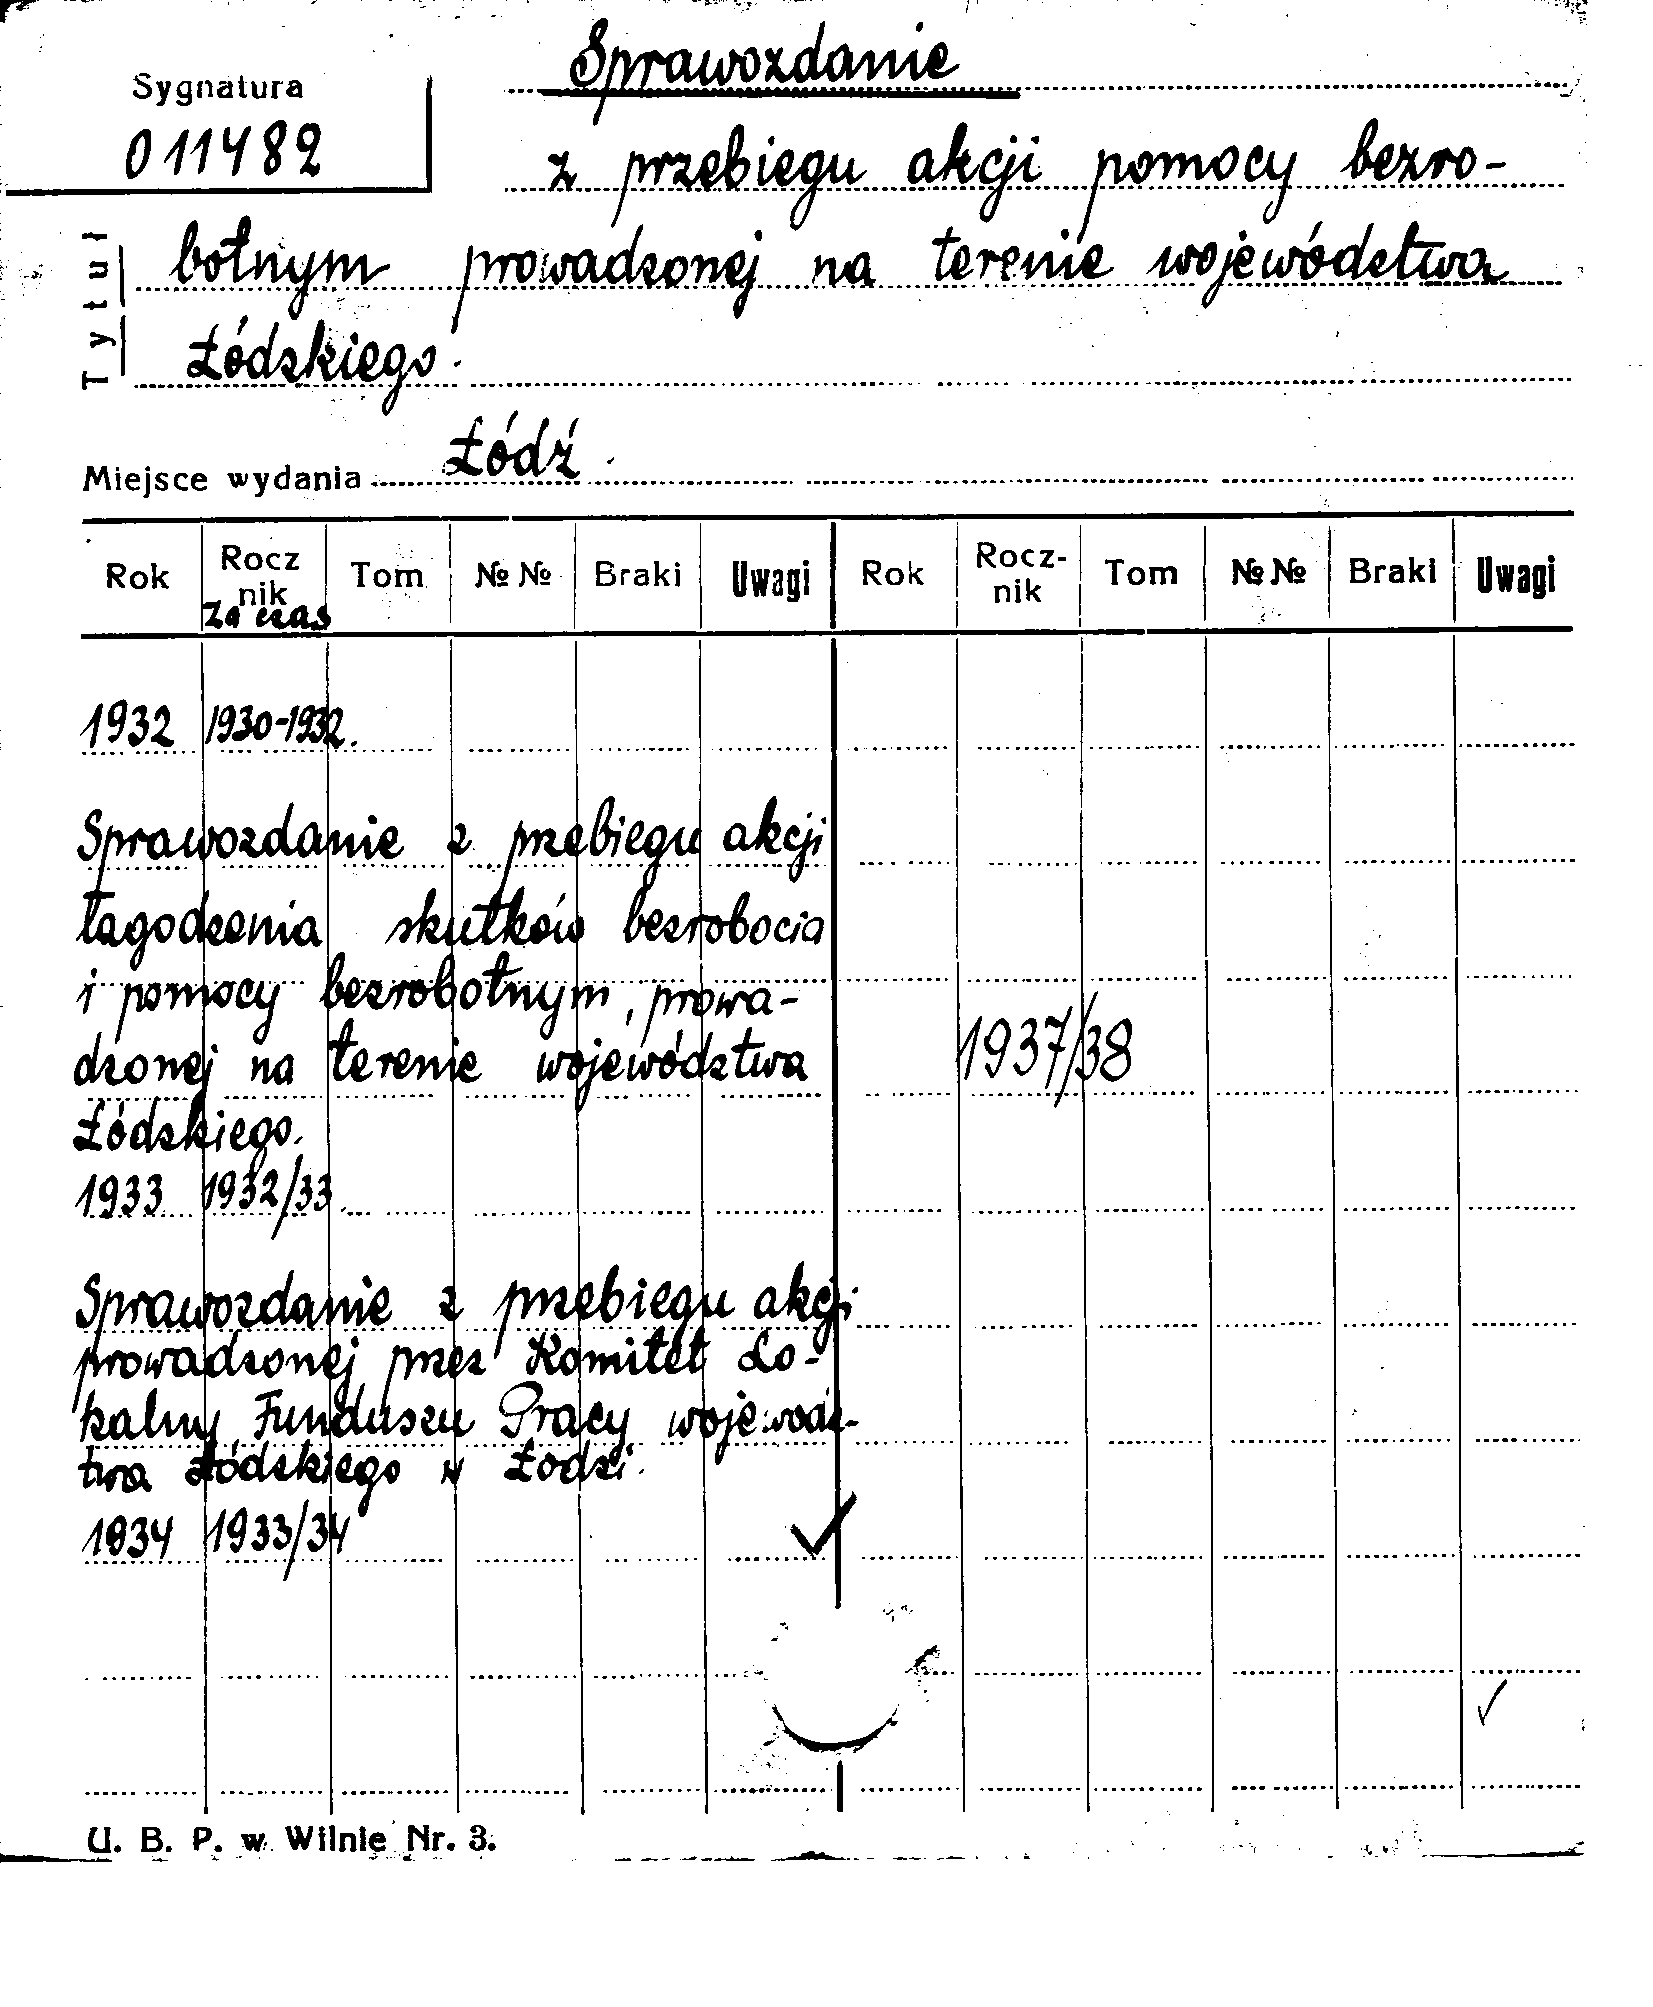 Sprawozdanie
Sygnatura
011482
z przebiegu akcji pomocy bezro-
Tytuł
botnym prowadzonej na terenie województwa
Łódzkiego.
Miejsce wydania Łódź.
Rok Rocz nik Tom №№ Braki Uwagi Rok Rocz- nik Tom №№ Braki Uwagi
za czas
1932 1930-1932.
Sprawozdanie z przebiegu akcji
łagodzenia skutków bezrobocia
i pomocy bezrobotnym, prowa-
dzonej na terenie województwa
1937/38
Łódzkiego.
1933 1932/33
Sprawozdanie z przebiegu akcji
prowadzonej przez Komitet Lo-
kalny Funduszu Pracy wojewódz-
twa Łódzkiego w Łodzi.
1934 1933/34
U. B. P. w Wilnie Nr. 3.